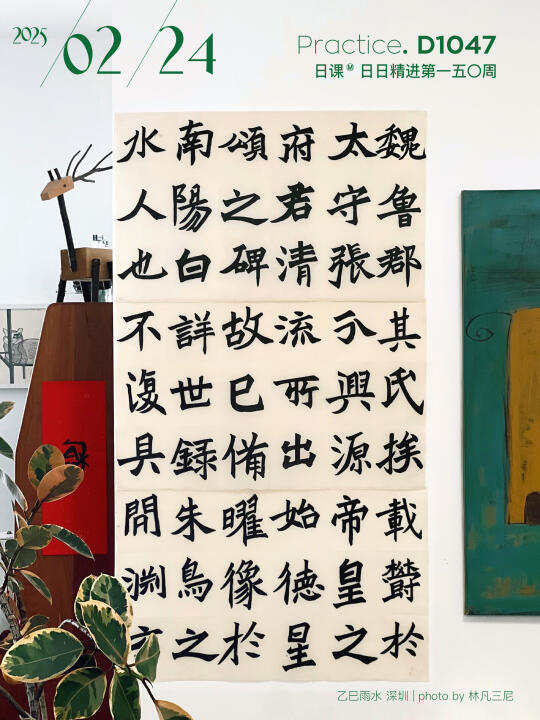 2025/02/24
Practice. D1047
日课 M 日日精进第一五〇周
魏魯郡
太守張
府君清
頌之碑
南陽白
水人也
其氏族
分興源
流所出
故已備
詳世録
不復具
載欝於
帝皇之
始德星
曜像於
朱鳥之
間渊
乙巳雨水 深圳 | photo by 林凡三尼